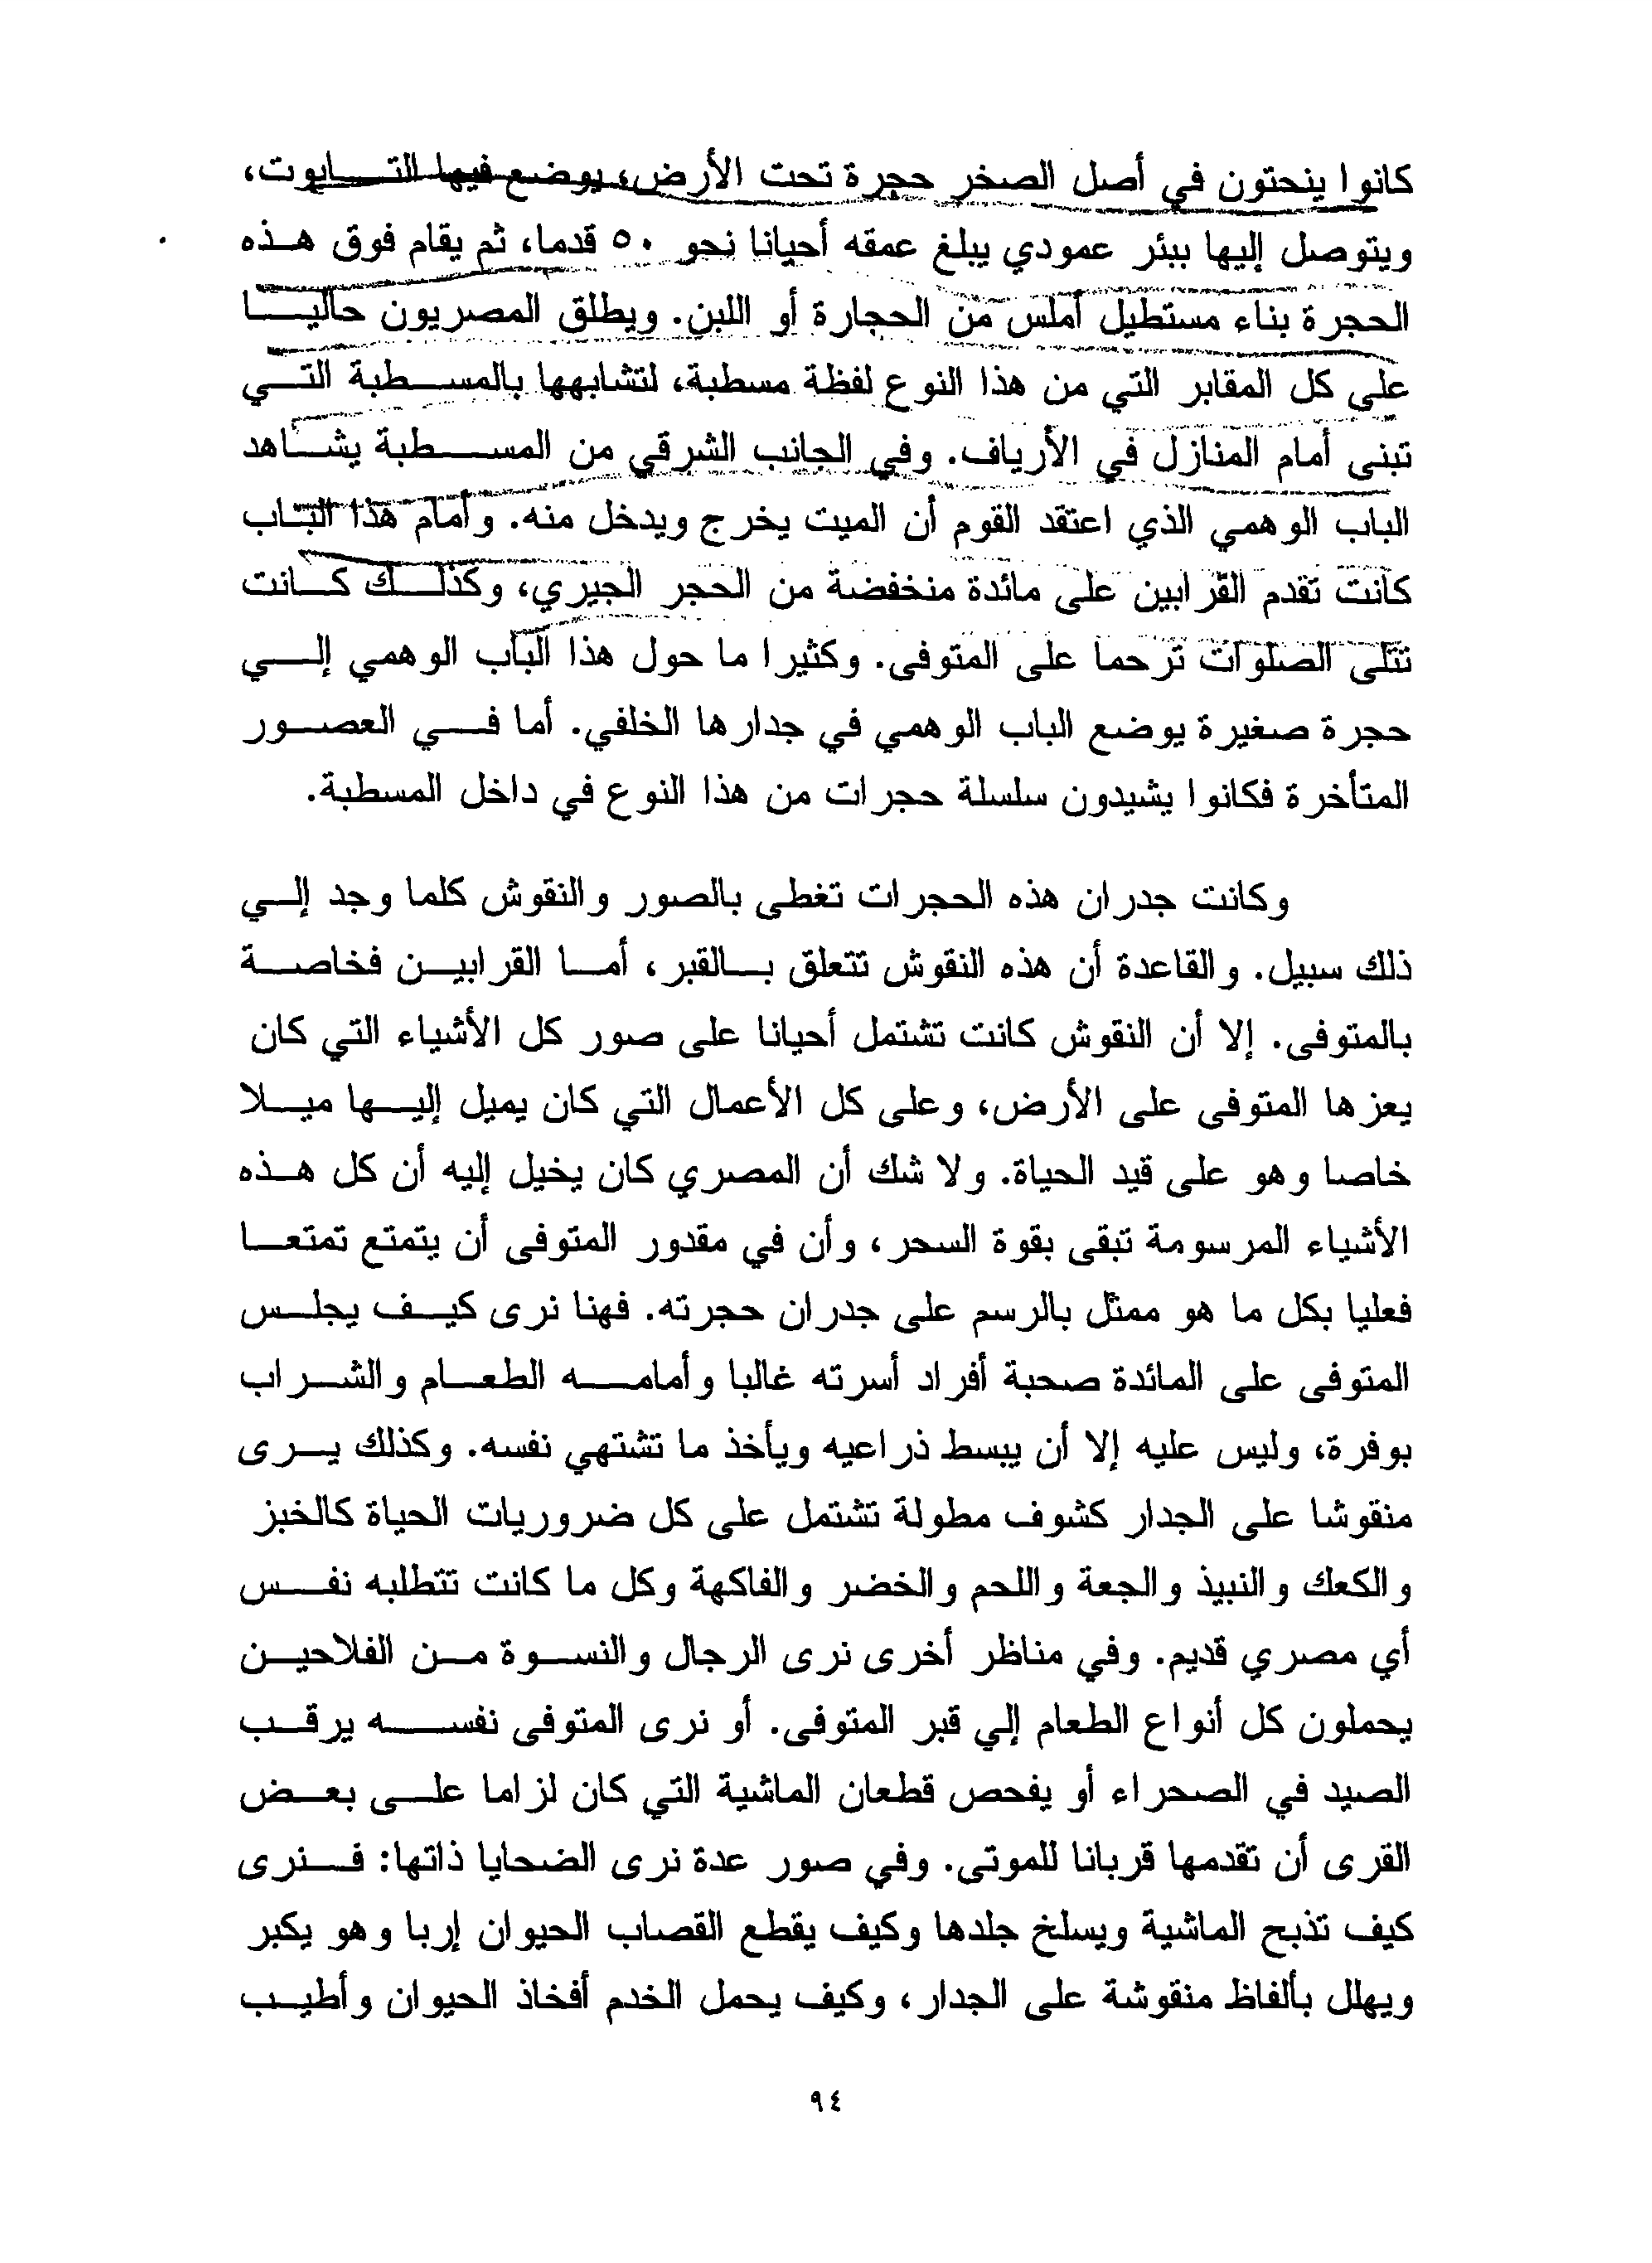 كانوا ينحتون في أصل الصخر حجرة تحت الأرض، يوضع فيها التابوت،
ويتوصل إليها ببئر عمودي يبلغ عمقه أحيانا نحو ٥٠ قدما، ثم يقام فوق هذه
الحجرة بناء مستطيل أملس من الحجارة أو اللبن. ويطلق المصريون حاليا
على كل المقابر التي من هذا النوع لفظة مسطبة، لتشابهها بالمسطبة التي
تبنى أمام المنازل في الأرياف. وفي الجانب الشرقي من المسطبة يشاهد
الباب الوهمي الذي اعتقد القوم أن الميت يخرج ويدخل منه. وأمام هذا الباب
كانت تقدم القرابين على مائدة منخفضة من الحجر الجيري، وكذلك كانت
تتلى الصلوات ترحما على المتوفى. وكثيرا ما حول هذا الباب الوهمي إلي
حجرة صغيرة يوضع الباب الوهمي في جدارها الخلفي. أما في العصور
المتأخرة فكانوا يشيدون سلسلة حجرات من هذا النوع في داخل المسطبة.
وكانت جدران هذه الحجرات تغطى بالصور والنقوش كلما وجد إلي
ذلك سبيل. والقاعدة أن هذه النقوش تتعلق بالقبر، أما القرابين فخاصة
بالمتوفى. إلا أن النقوش كانت تشتمل أحيانا على صور كل الأشياء التي كان
يعزها المتوفى على الأرض، وعلى كل الأعمال التي كان يميل إليها ميلا
خاصا وهو على قيد الحياة. ولا شك أن المصري كان يخيل إليه أن كل هذه
الأشياء المرسومة تبقى بقوة السحر، وأن في مقدور المتوفى أن يتمتع تمتعا
فعليا بكل ما هو ممثل بالرسم على جدران حجرته. فهنا نرى كيف يجلس
المتوفى على المائدة صحبة أفراد أسرته غالبا وأمامه الطعام والشراب
بوفرة، وليس عليه إلا أن يبسط ذراعيه ويأخذ ما تشتهي نفسه. وكذلك يرى
منقوشا على الجدار كشوف مطولة تشتمل على كل ضروريات الحياة كالخبز
والكعك والنبيذ والجعة واللحم والخضر والفاكهة وكل ما كانت تتطلبه نفس
أي مصري قديم. وفي مناظر أخرى نرى الرجال والنسوة من الفلاحين
يحملون كل أنواع الطعام إلي قبر المتوفى. أو نرى المتوفى نفسه يرقب
الصيد في الصحراء أو يفحص قطعان الماشية التي كان لزاما على بعض
القرى أن تقدمها قربانا للموتى. وفي صور عدة نرى الضحايا ذاتها: فنرى
كيف تذبح الماشية ويسلخ جلدها وكيف يقطع القصاب الحيوان إربا وهو يكبر
ويهلل بألفاظ منقوشة على الجدار، وكيف يحمل الخدم أفخاذ الحيوان وأطيب
٩٤